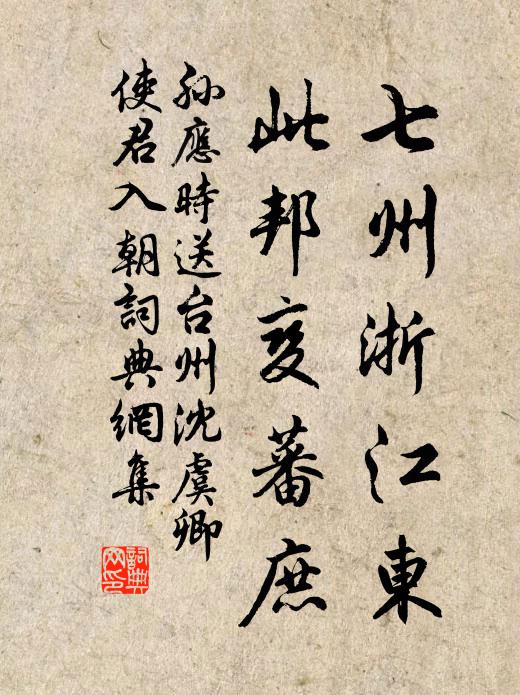 七州浙江東
此邦变蕃庶
孙應時送台州沈虞卿
使君入朝詞典網集
詞典
网印